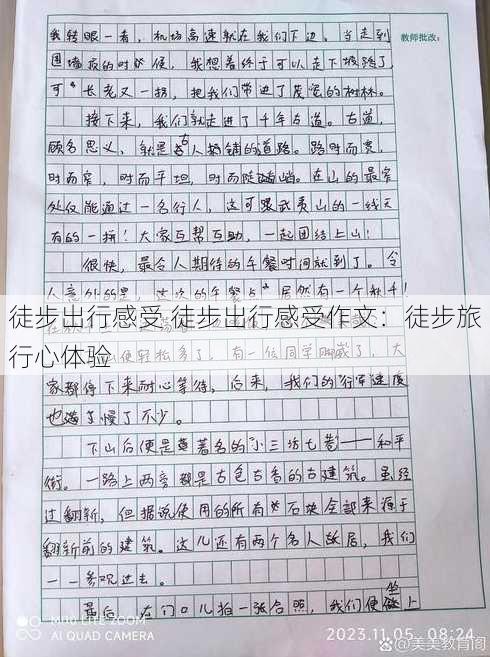 我转眼一看，机场高速就在我们下边。当走到
教师批改：
的时候，我想着终于可以走下坡路了，
可“长老又一拐，把我们带进了茂密的树林。
接下来，我们就走进了千年古道。古道，
顾名思义，就是古人铺的道路。路时而宽，
时而窄，时而平坦，时而陡峭。在山的最窄
处仅能通过一名行人，这可跟武夷山的一线天
有的一拼！大家互帮互助，一起团结上山！
很快，最令人期待的午餐时间就到了。令
人意外的是，这次的午餐点居然有一个秋千！
徒步出行感受,徒步出行感受作文：徒步旅
行心体验
山便轻松多了，有一位同学脚崴了，大
家都停下来耐心等待，后来，我们的“行军速度
也
慢了不少。
下山后便是著名的“小三坊七巷——和平
街。一路上两旁都是古色古香的古建筑。虽经
过翻新，但据说使用的所有石块全部来源于
翻新前的建筑。这儿还有两个名人故居，我们
一一参观过去。
最后，在门口儿拍一张合照，我们便坐上
AI QUAD CAMERA
2023.11.05 08:24
@美美教育阁